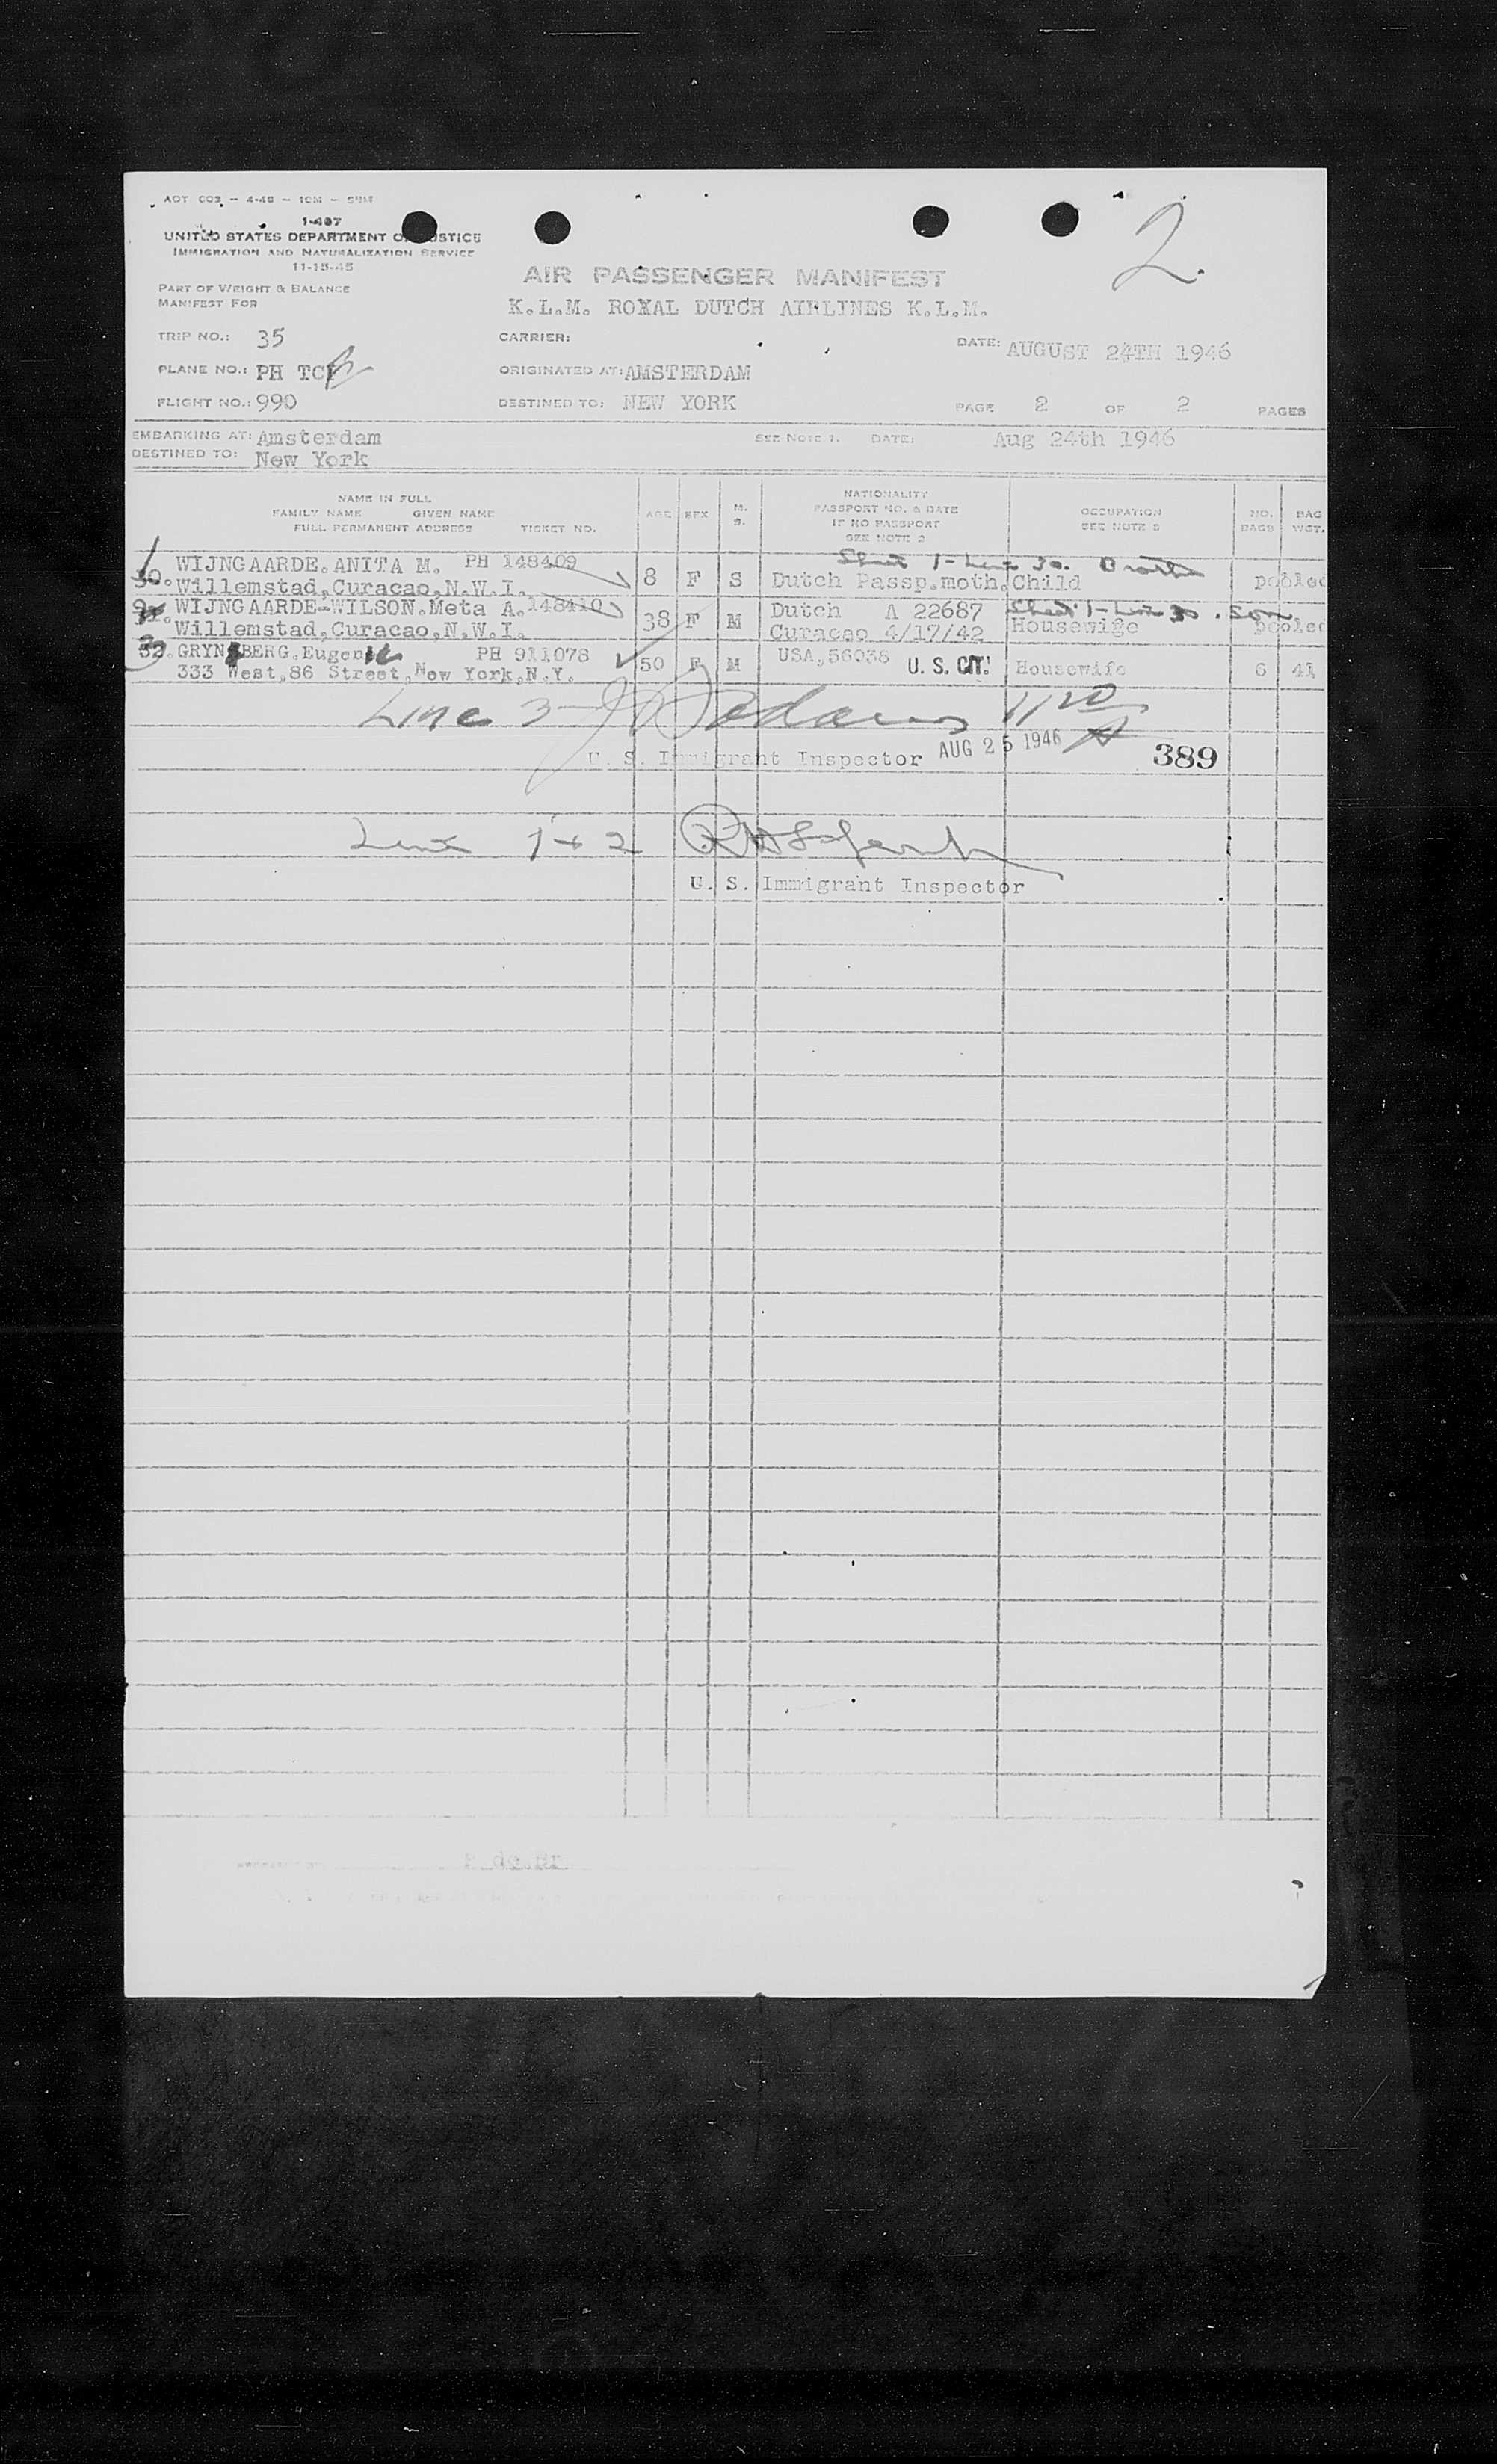 1-487
UNITED STATES DEPARTMENT OF JUSTICE
IMMIGRATION AND NATURALIZATION SERVICE
11-15-45
2.
AIR PASSENGER MANIFEST
PART OF WEIGHT & BALANCE
MANIFEST FOR
K.L.M. ROYAL DUTCH AIRLINES K.L.M.
TRIP NO.: 35 CARRIER: DATE: AUGUST 24TH 1946
PLANE NO.: PH TC ORIGINATED AT: AMSTERDAM
FLIGHT NO.: 990 DESTINED TO: NEW YORK PAGE 2 OF 2 PAGES
EMBARKING AT: Amsterdam SEE NOTE 1. DATE: Aug 24th 1946
DESTINED TO: New York
NAME IN FULL
FAMILY NAME GIVEN NAME
FULL PERMANENT ADDRESS TICKET NO.
AGE SEX M. S.
NATIONALITY
PASSPORT NO. & DATE
IF NO PASSPORT
SEE NOTE 2
OCCUPATION
SEE NOTE 3
NO. BAGS
BAG WGT.
WIJNGAARDE.ANITA M. PH 148409 Sheet 1-Line 30. Brother
30. Willemstad,Curacao,N.W.I. 8 F S Dutch Passp.moth. Child pooled
WIJNGAARDE-WILSON.Meta A. 148410 Dutch A 22687 Sheet 1-Line 30. son
31. Willemstad,Curacao,N.W.I. 38 F M Curacao 4/17/42 Housewife pooled
32. GRYNBERG,Eugenie PH 911078 USA,56038 U. S. CIT.
333 West,86 Street,New York,N.Y. 50 F M Housewife 6 41
Line 3 Adams
U. S. Immigrant Inspector AUG 25 1946 389
Line 1 + 2
U. S. Immigrant Inspector